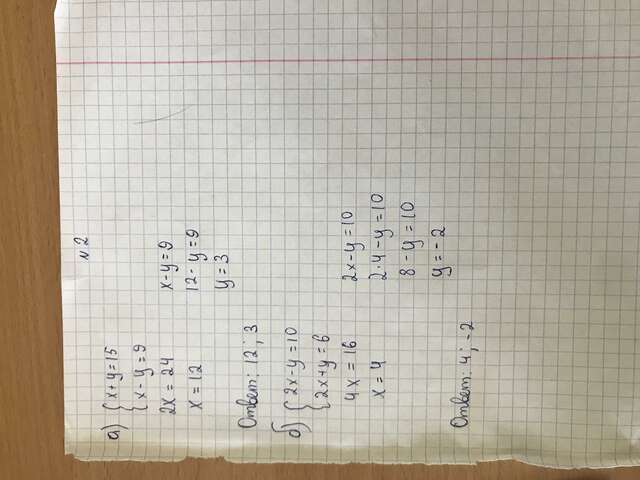 № 2
а) { x + y = 15
x - y = 9
2x = 24
x = 12
x - y = 9
12 - y = 9
y = 3
Ответ: 12 ; 3
б) { 2x - y = 10
2x + y = 6
4x = 16
x = 4
2x - y = 10
2·4 - y = 10
8 - y = 10
y = -2
Ответ: 4 ; -2